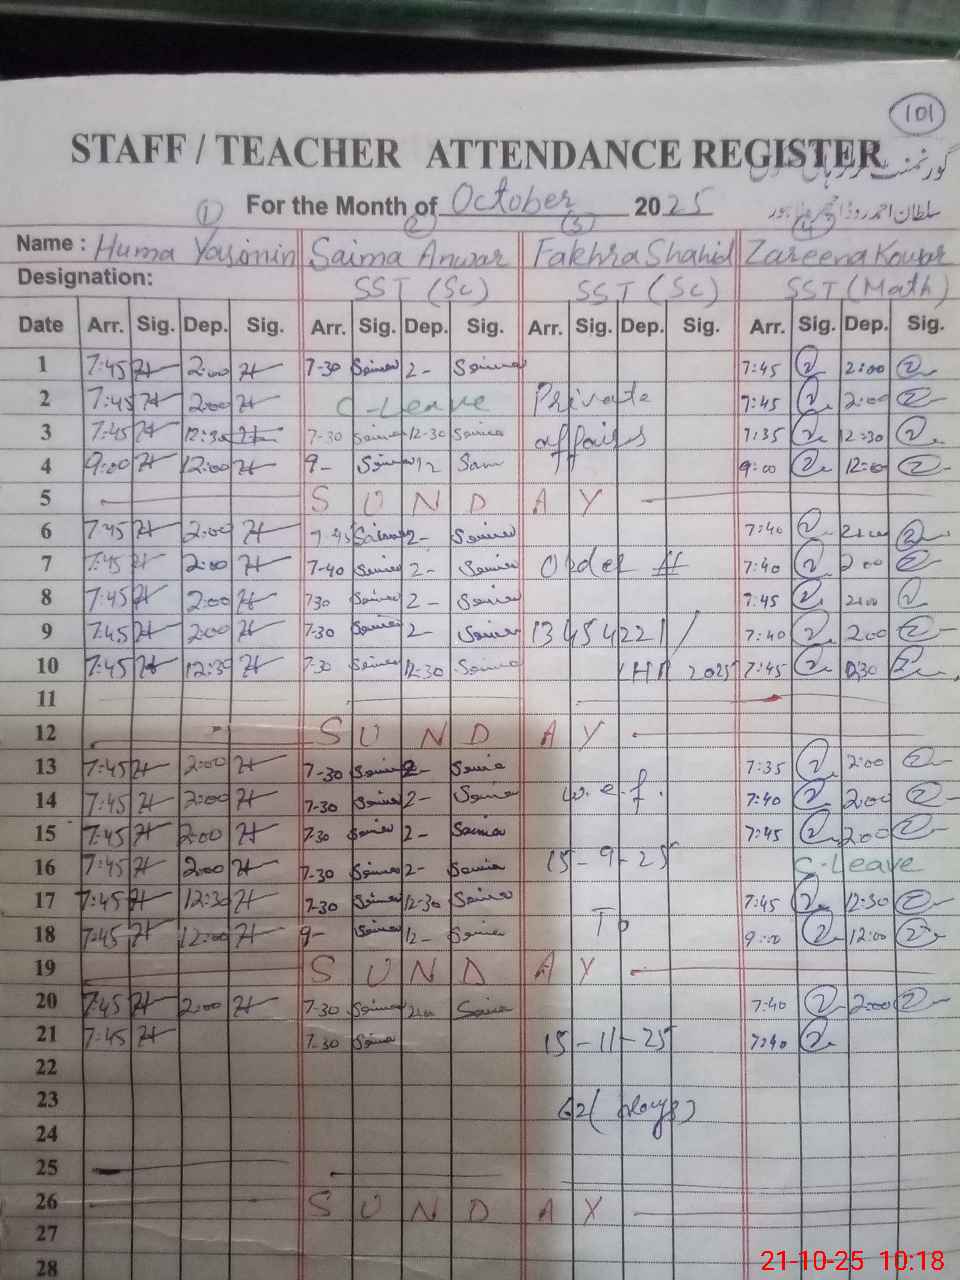 101
STAFF / TEACHER ATTENDANCE REGISTER
For the Month of October 2025
1 2 3 4
Name : Huma Yasimin Saima Anwar Fakhra Shahid Zareena Kousar
Designation: SST (Sc) SST (Sc) SST (Math)
Date Arr. Sig. Dep. Sig. Arr. Sig. Dep. Sig. Arr. Sig. Dep. Sig. Arr. Sig. Dep. Sig.
1 7:45 H 2:00 H 7-30 Saima 2- Saima 7:45 2:00
2 7:45 H 2:00 H C-Leave Private 7:45 2:00
3 7:45 H 12:30 H 7-30 Saima 12-30 Saima affairs 7:35 12:30
4 9:00 H 12:00 H 9- Saima 12 Sam 9:00 12:00
5 S U N D A Y
6 7:45 H 2:00 H 7-45 Saima 2- Saima 7:40
7 7:45 H 2:00 H 7-40 Saima 2- Saima Order # 7:40 2 00
8 7:45 H 2:00 H 7-30 Saima 2- Saima 7:45 2:00
9 7:45 H 2:00 H 7-30 Saima 2- Saima 13454221/ 7:40 2:00
10 7:45 H 12:30 H 7-30 Saima 12-30 Saima 2025 7:45 12:30
11
12 S U N D A Y
13 7:45 H 2:00 H 7-30 Saima 2- Saima 7:35 2:00
14 7:45 H 2:00 H 7-30 Saima 2- Saima w.e.f. 7:40 2:00
15 7:45 H 2:00 H 7-30 Saima 2- Saima 7:45 2:00
16 7:45 H 2:00 H 7-30 Saima 2- Saima 15-9-25 C-Leave
17 7:45 H 12:30 H 7-30 Saima 12-30 Saima 7:45 12:30
18 7:45 H 12:00 H 9- Saima 12- Saima To 9:00 12:00
19 S U N D A Y
20 7:45 H 2:00 H 7-30 Saima 2:00 Saima 7:40 2:00
21 7:45 H 7-30 Saima 15-11-25 7:40
22
23 62 (days)
24
25
26 S U N D A Y
27
28
21-10-25 10:18